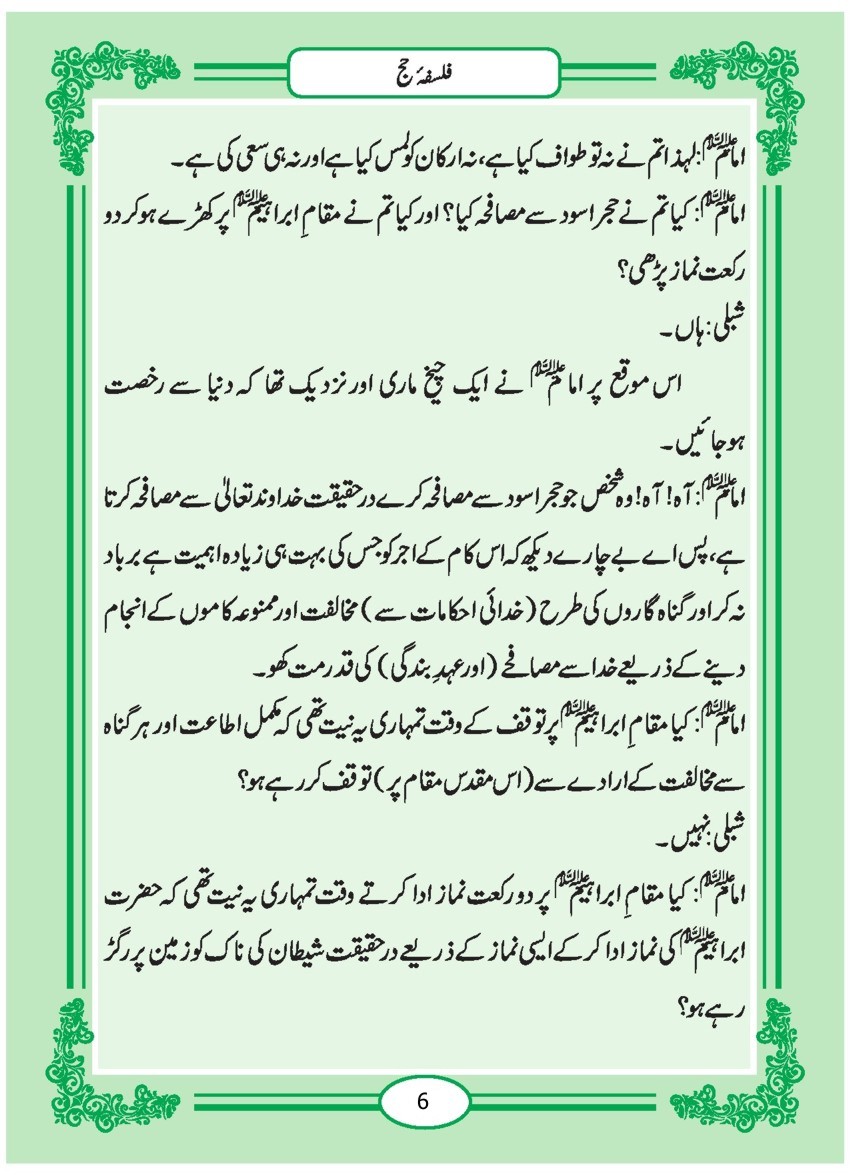 فلسفۂ حج
امام علیہ السلام: لہٰذا تم نے نہ تو طواف کیا ہے، نہ ارکان کو لمس کیا ہے اور نہ ہی سعی کی ہے۔
امام علیہ السلام: کیا تم نے حجر اسود سے مصافحہ کیا؟ اور کیا تم نے مقامِ ابراہیم علیہ السلام پر کھڑے ہو کر دو
رکعت نماز پڑھی؟
شبلی: ہاں۔
اس موقع پر امام علیہ السلام نے ایک چیخ ماری اور نزدیک تھا کہ دنیا سے رخصت
ہو جائیں۔
امام علیہ السلام: آہ! آہ! وہ شخص جو حجر اسود سے مصافحہ کرے درحقیقت خداوند تعالیٰ سے مصافحہ کرتا
ہے، پس اے بے چارے دیکھ کہ اس کام کے اجر کو جس کی بہت ہی زیادہ اہمیت ہے برباد
نہ کر اور گناہ گاروں کی طرح (خدائی احکامات سے) مخالفت اور ممنوعہ کاموں کے انجام
دینے کے ذریعے خدا سے مصافحے (اور عہدِ بندگی) کی قدر مت کھو۔
امام علیہ السلام: کیا مقامِ ابراہیم علیہ السلام پر توقف کے وقت تمہاری یہ نیت تھی کہ مکمل اطاعت اور ہر گناہ
سے مخالفت کے ارادے سے (اس مقدس مقام پر) توقف کر رہے ہو؟
شبلی: نہیں۔
امام علیہ السلام: کیا مقامِ ابراہیم علیہ السلام پر دو رکعت نماز ادا کرتے وقت تمہاری یہ نیت تھی کہ حضرت
ابراہیم علیہ السلام کی نماز ادا کر کے ایسی نماز کے ذریعے درحقیقت شیطان کی ناک کو زمین پر رگڑ
رہے ہو؟
6